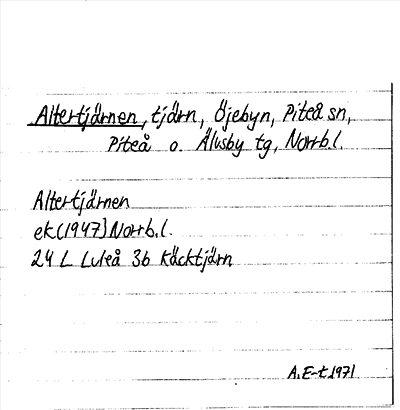 Altertjärnen, tjärn, Öjebyn, Piteå sn,
Piteå o. Älvsby tg, Norrb.l.
Altertjärnen
ek(1947)Norrb.l.
24 L Luleå 3b Käcktjärn
A.E-t 1971